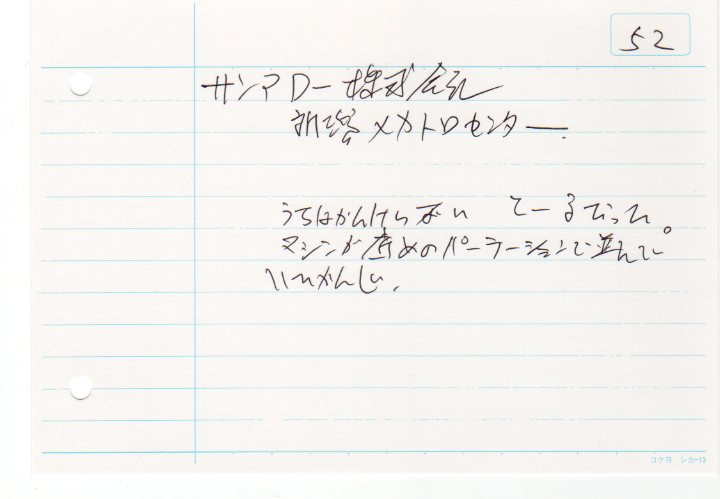 52
サンアロー株式会社
釧路メカトロセンター
うちはかんけい ない てーるだった。
マシンが めのパーテーションで並んで
いいかんじ。
コクヨ シカ-13